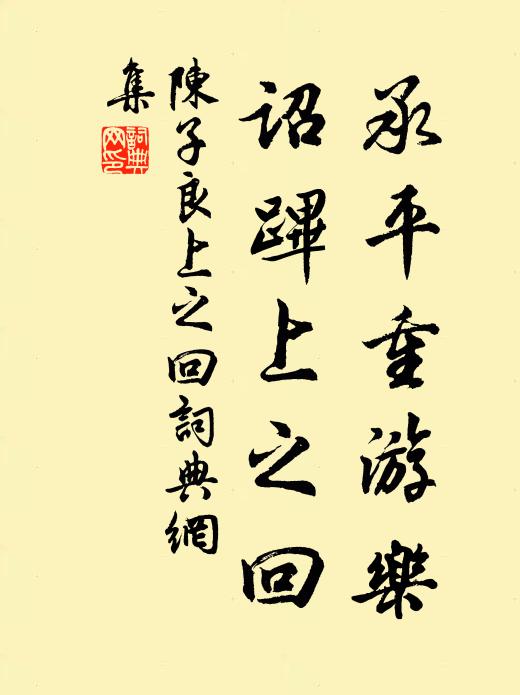 承平重游樂
詔蹕上之回
陳子良上之回詞典網
集
詞典
网印